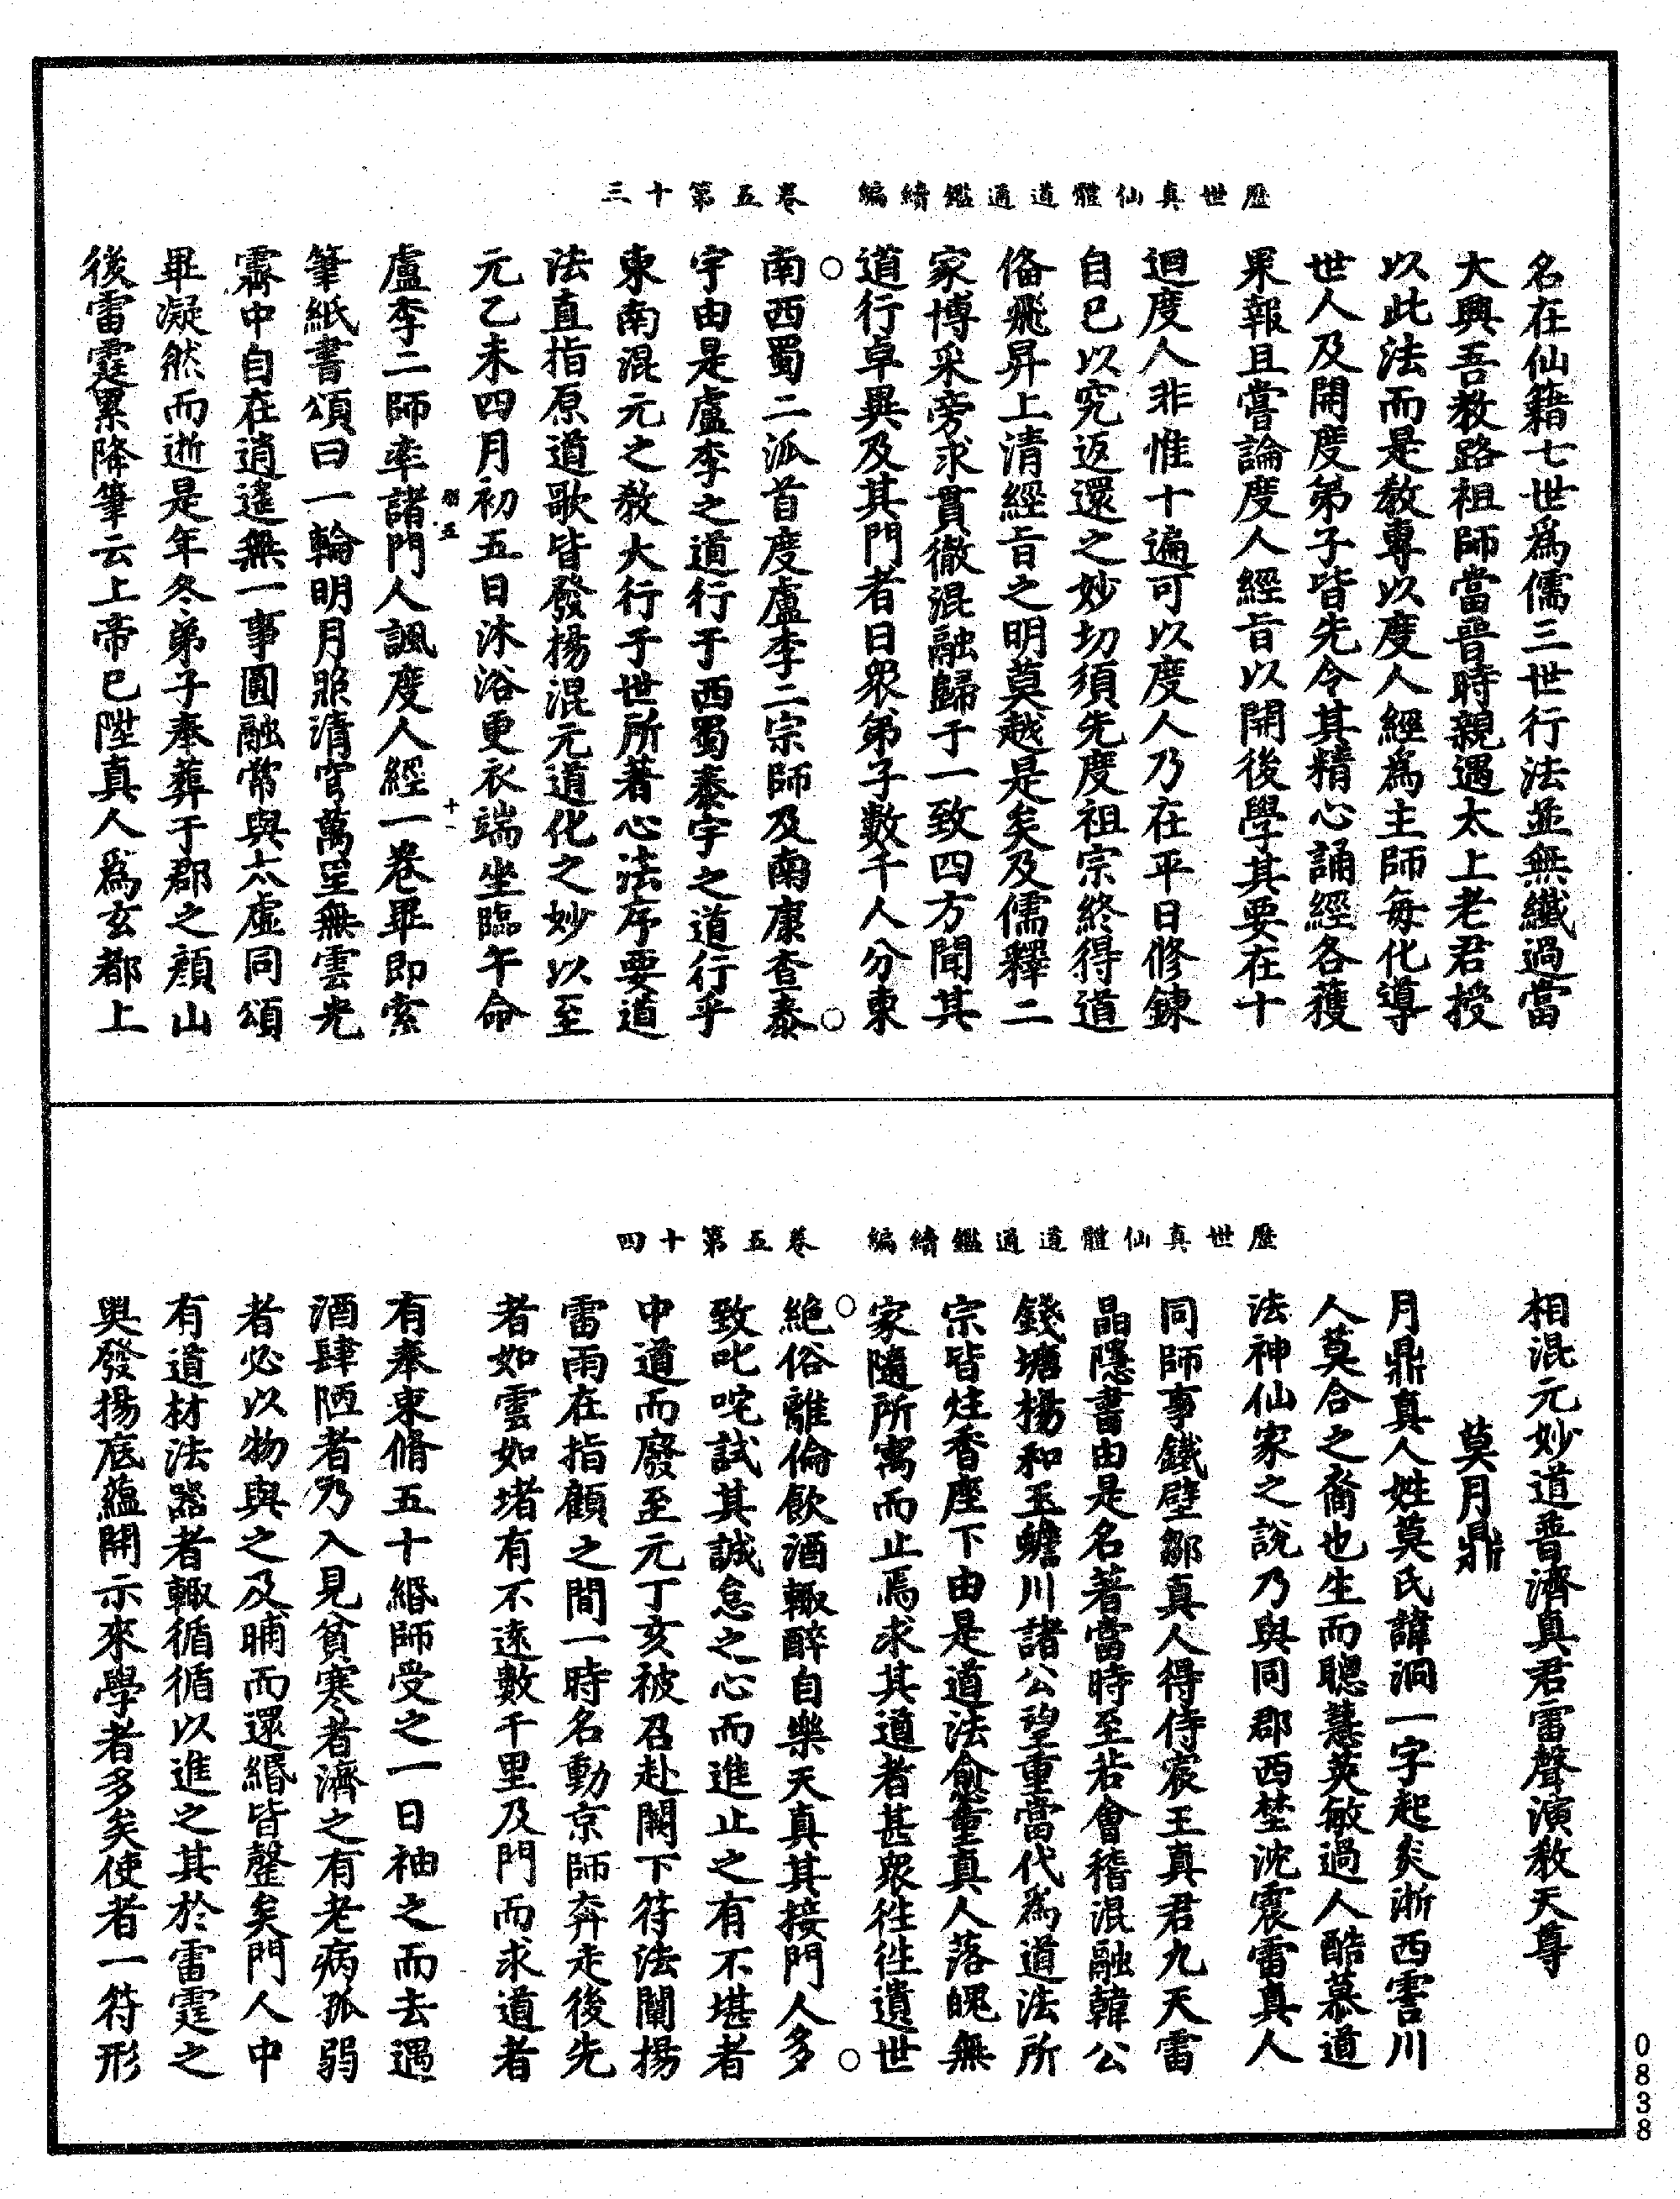 歷世真仙體道通鑑續編　卷五第十三
名在仙籍七世為儒三世行法並無纖過當
大興吾教路祖師當晉時親遇太上老君授
以此法而是教專以度人經為主師每化導
世人及開度弟子皆先令其精心誦經各獲
果報且嘗論度人經旨以開後學其要在十
迴度人非惟十遍可以度人乃在平日修鍊
自己以究返還之妙切須先度祖宗終得道
俻飛昇上清經旨之明莫越是矣及儒釋二
家博采旁求貫徹混融歸于一致四方聞其
道行卓異及其門者日衆弟子數千人分東
南西蜀二派首度盧李二宗師及南康查泰
宇由是盧李之道行于西蜀泰宇之道行乎
東南混元之教大行于世所著心法序要道
法直指原道歌皆發揚混元道化之妙以至
元乙未四月初五日沐浴更衣端坐臨午命
盧李二師率諸門人諷度人經一卷畢即索
筆紙書頌曰一輪明月照清宵萬里無雲光
霽中自在逍遙無一事圓融常與太虛同頌
畢凝然而逝是年冬弟子奉葬于郡之顏山
後雷霆累降筆云上帝已陞真人為玄都上
歷世真仙體道通鑑續編　卷五第十四
相混元妙道普濟真君雷聲演教天尊
莫月鼎
月鼎真人姓莫氏諱洞一字起炎浙西霅川
人莫合之裔也生而聰慧英敏過人酷慕道
法神仙家之說乃與同郡西埜沈震雷真人
同師事鐵壁鄒真人得侍宸王真君九天雷
晶隱書由是名著當時至若會稽混融韓公
錢塘楊和玉蟾川諸公望重當代為道法所
宗皆炷香座下由是道法愈重真人落魄無
家隨所寓而止焉求其道者甚衆徃徃遺世
絕俗離倫飲酒輙醉自樂天真其接門人多
致叱咤試其誠怠之心而進止之有不堪者
中道而廢至元丁亥被召赴闕下符法闡揚
雷雨在指顧之間一時名動京師奔走後先
者如雲如堵有不遠數千里及門而求道者
有奉束脩五十緡師受之一日袖之而去遇
酒肆陋者乃入見貧寒者濟之有老病孤弱
者必以物與之及晡而還緡皆罄矣門人中
有道材法器者輙循循以進之其於雷霆之
奥發揚底蘊開示來學者多矣使者一符形
0838